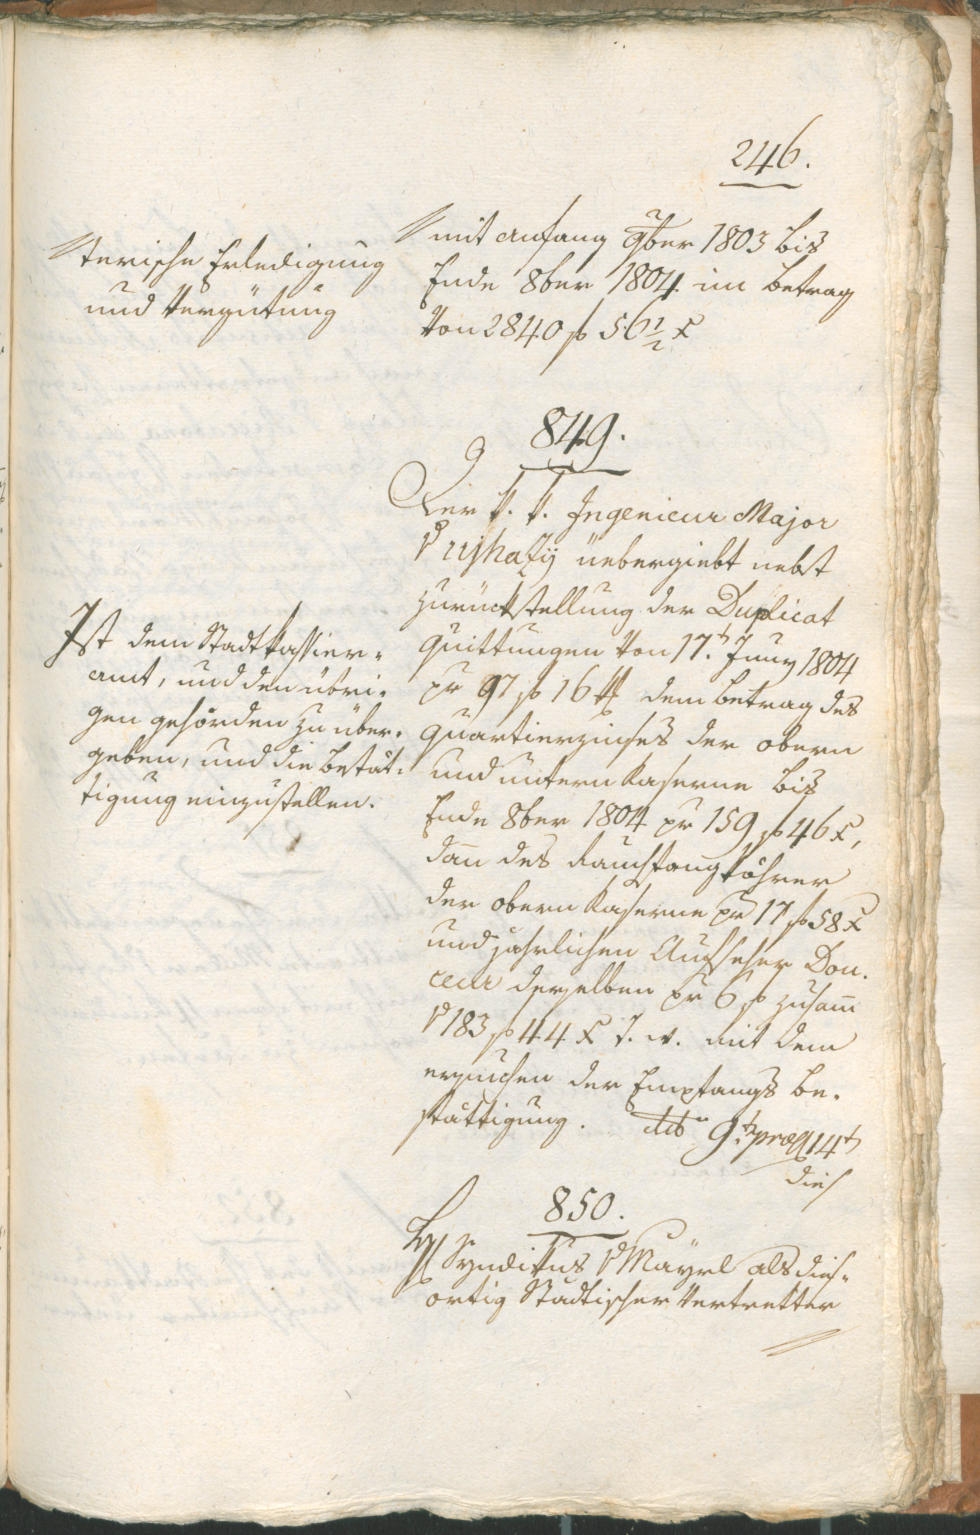 246.
terische Erledigung
und Vergütung
mit Anfang 9ber 1803 bis
Ende 8ber 1804 im Betrag
von 2840 f 56 1/2 x
849.
Der k. k. Ingenieur Major
v üebergiebt nebst
zurückstellung der Duplicat
Quittungen von 17. Juny 1804
pr 97 f 16 dem Betrag des
Quartierzinses der obern
und untern Kaserne bis
Ende 8ber 1804 pr 159 f 46 x,
dan des Rauchfangköhrer
der obern Kaserne pr 17 f 58 x
und jahrlichen Aufseher Dou-
ceur derselben pr 6 f zusamm
183 f 44 x mit dem
ersuchen der Empfangs be-
stättigung. dto 9t praes 14t
dies
Ist dem Stadtkassier-
amt, und den übri-
gen gehörden zu über-
geben, und die bestät-
tigung einzustellen.
850.
H Syndikus v Mayrl als dies-
ortig Stadtischer Vertretter